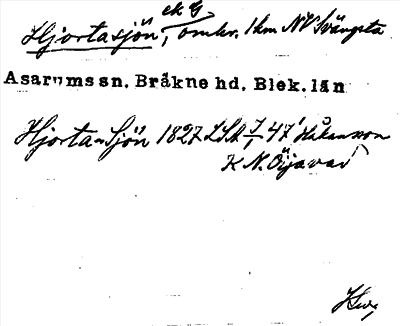 Hjortasjön, ek G, omkr. 1 km NV Svängsta
Asarums sn. Bräkne hd. Blek. län
Hjorta-Sjön 1827 LSA 47 Håkansson
K N.